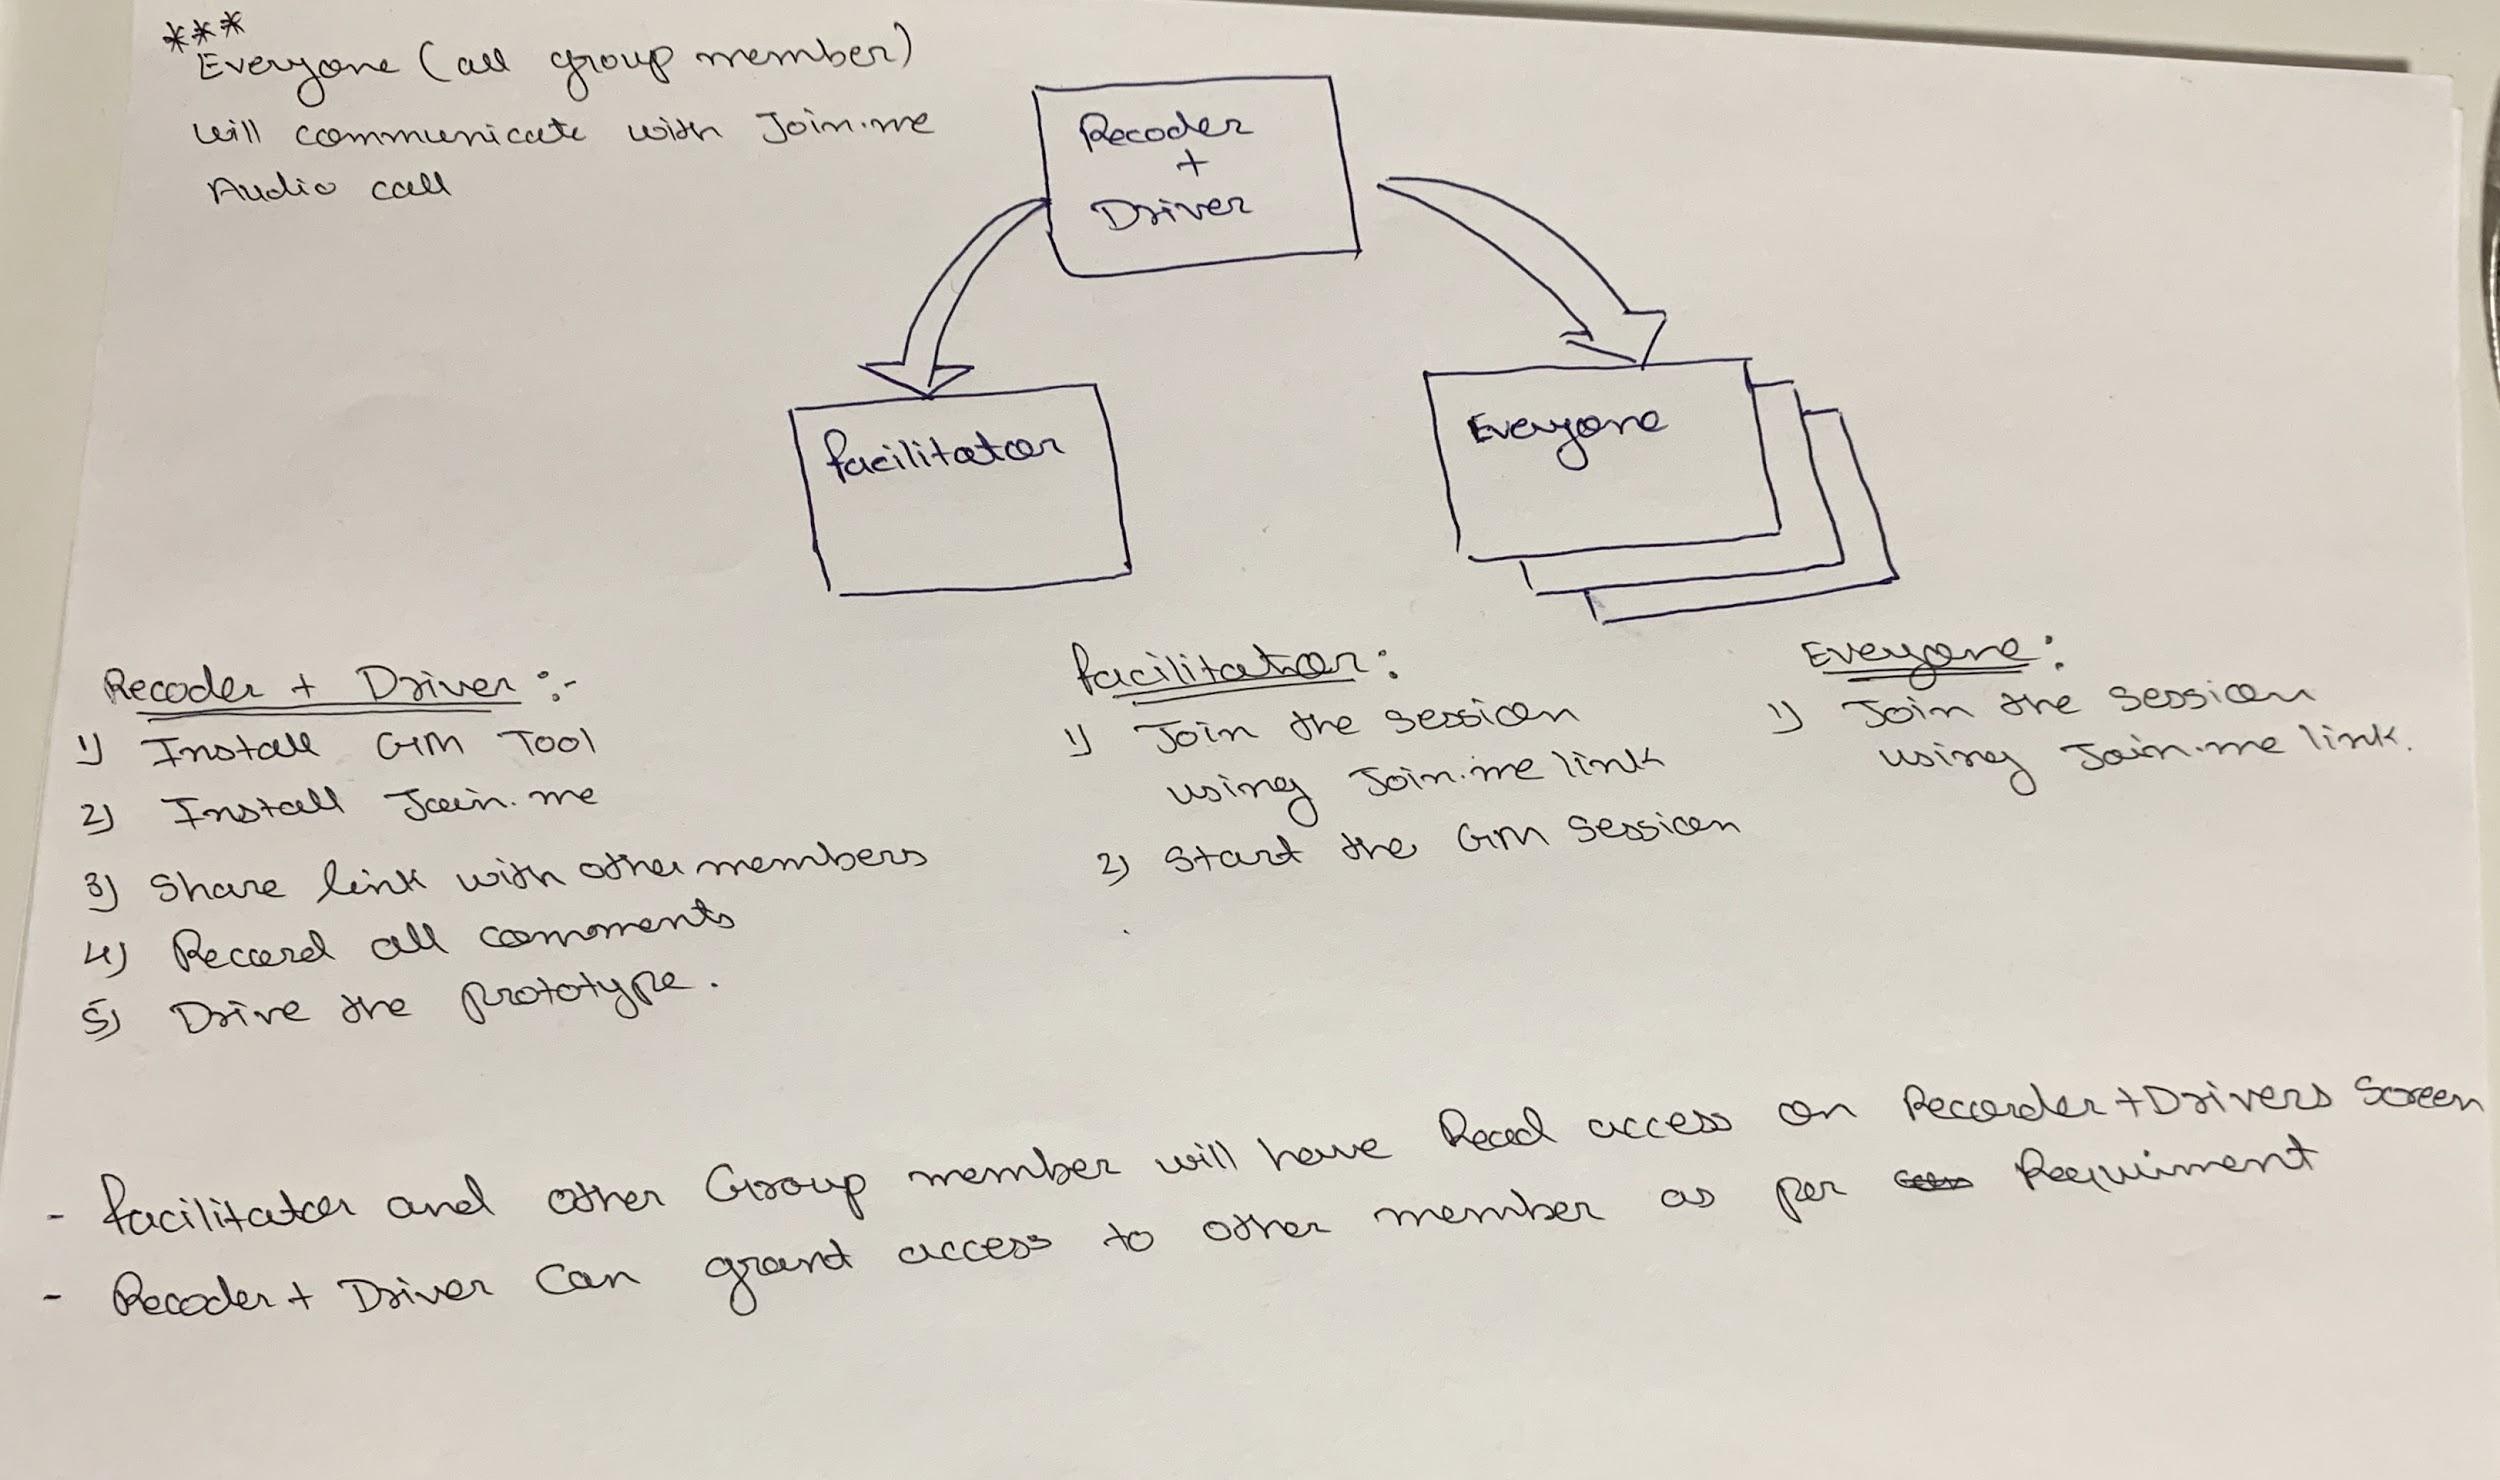 ***
Everyone (all group member)
will communicate with Join.me
Audio call
Recoder
+
Driver
facilitator
Everyone
Recoder + Driver :-
1) Install GM Tool
2) Install Join.me
3) Share link with other members
4) Record all comments
5) Drive the prototype.
facilitator:
1) Join the session
using Join.me link
2) Start the GM session
Everyone:
1) Join the session
using Join.me link.
- facilitator and other Group member will have Read access on Recorder+Drivers Screen
- Recoder + Driver can grant access to other member as per Requirment